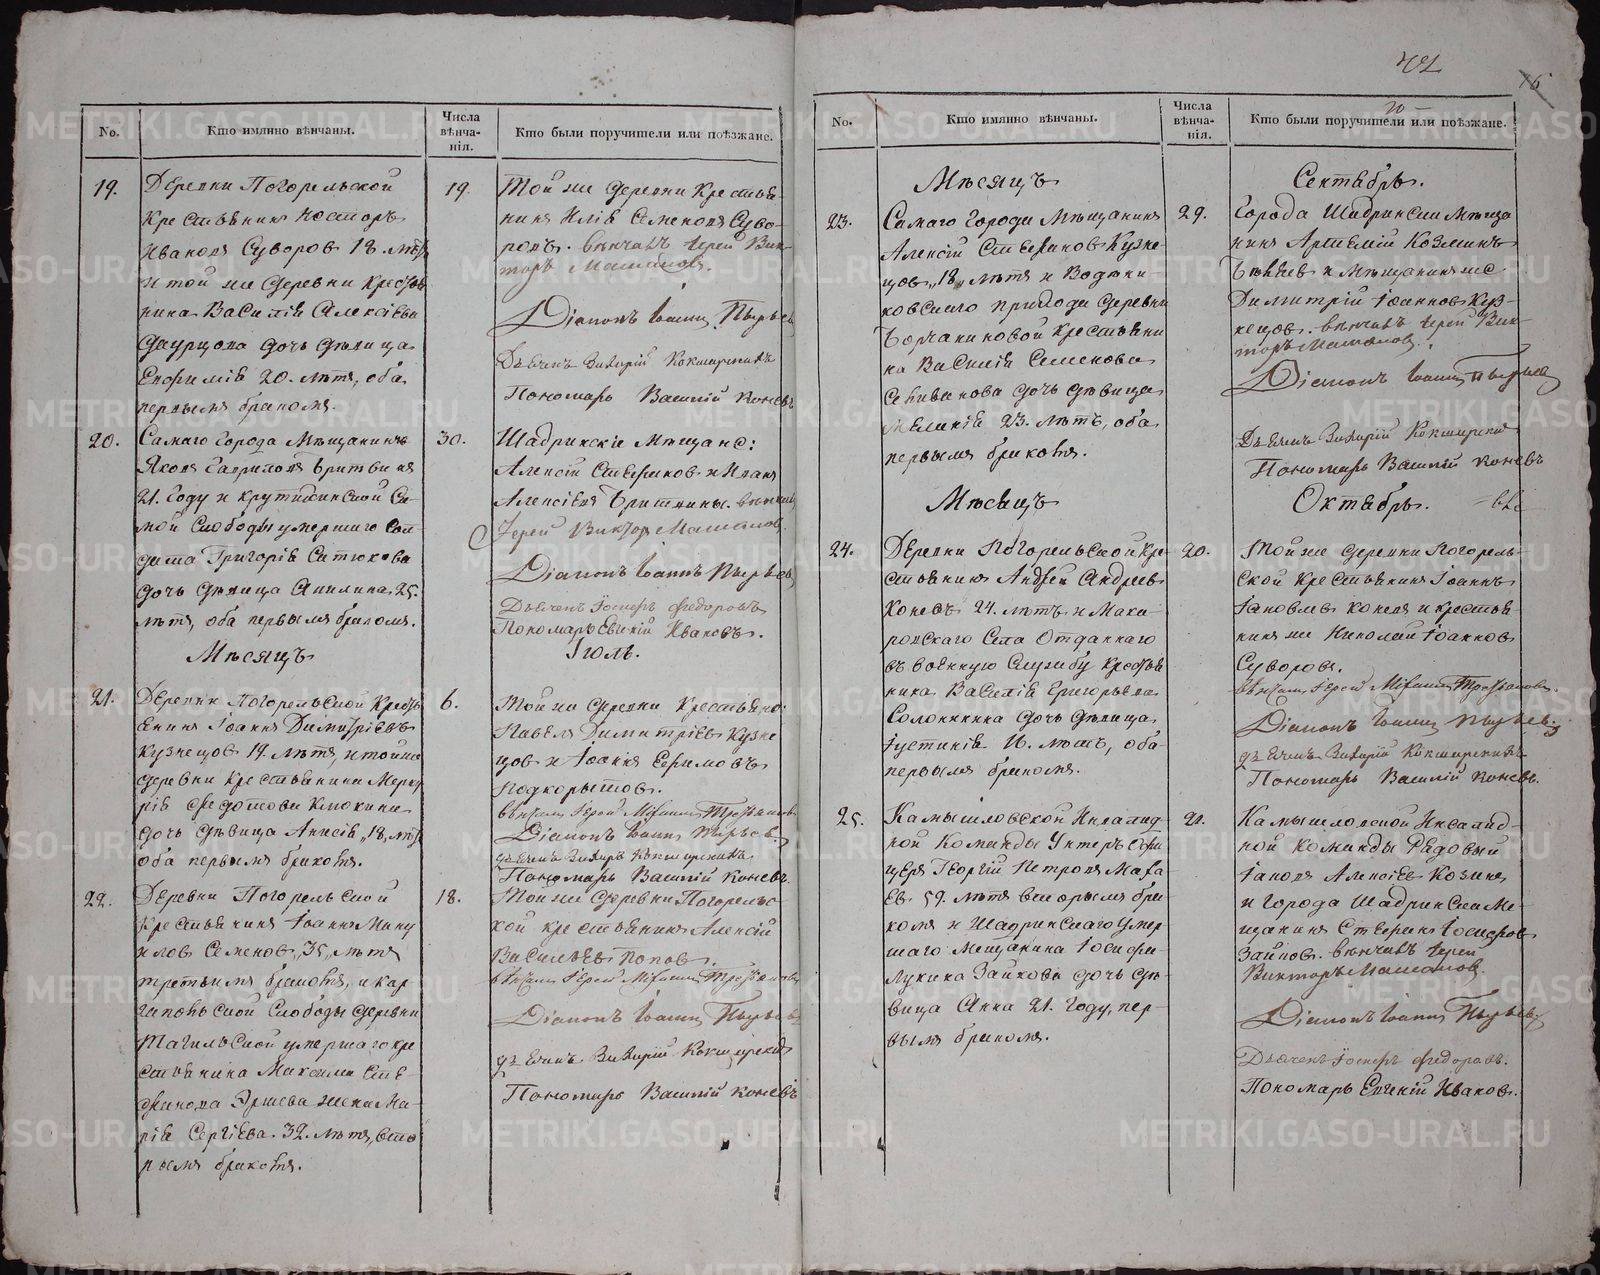 42
16
No.
Кто имянно вѣнчаны.
Числа вѣнча-нія.
Кто были поручители или поѣзжане.
19.
Деревни Погорельской
крестьянинъ Несторъ
Ивановъ Суворовъ 18 лѣтъ
и той же деревни крестья
нина Василія Алексѣева
дочь дѣвица
Евфимія 20. лѣтъ, оба
первымъ бракомъ.
19.
Той же деревни крестья-
нинъ Илія Семеновъ Суво-
ровъ. вѣнчалъ Іерей Вик-
торъ
Діаконъ Іоаннъ Пырьевъ
Дьячекъ Кокшарскихъ
Пономарь Василій Коневъ
20.
Самаго города Мѣщанинъ
Яковъ Гавриловъ Бритвинъ
21. году и Крутихинской Са-
мой Слободы умершаго Сол-
дата Григорія Сатюкова
дочь дѣвица Акилина 25.
лѣтъ, оба первымъ бракомъ.
30.
Шадринскіе Мѣщане:
Алексій Стефановъ и Иванъ
Алексѣевъ Бритвины. вѣнчалъ
Іерей Викторъ
Діаконъ Іоаннъ Пырьевъ
Дьячекъ Іосифъ Федоровъ
Пономарь Евгеній Ивановъ.
Мѣсяцъ
Іюль.
21.
Деревни Погорельской Кресть
янинъ Іоаннъ Димитріевъ
Кузнецовъ 19. лѣтъ, и той же
деревни крестьянина Мерку
рія Федотова Клюкина
дочь дѣвица Анисія 18, лѣтъ
оба первымъ бракомъ.
6.
Той же деревни Крестьяне:
Павелъ Димитріевъ Кузне
цовъ и Іоаннъ Ефимовъ
Подкорытовъ.
вѣнчалъ Іерей
Діаконъ Іоаннъ Пырьевъ
Дьячекъ Кокшарскихъ
Пономарь Василій Коневъ.
22.
Деревни Погорельской
Крестьянинъ Іоаннъ Ману
иловъ Семеновъ, 35, лѣтъ
третьимъ бракомъ, и Кар
гапольской Слободы деревни
Тагильской умершаго кре
стьянина Максима Сте-
фанова Ершева жена Ма-
рія Сергіева. 32. лѣтъ, вто
рымъ бракомъ.
18.
Той же деревни Погорельс-
кой крестьянинъ Алексій
Васильевъ Поповъ.
вѣнчалъ Іерей
Діаконъ Іоаннъ Пырьевъ
Дьячекъ Кокшарскихъ
Пономарь Василій Коневъ
No.
Кто имянно вѣнчаны.
Числа вѣнча-нія.
Кто были поручители или поѣзжане.
Мѣсяцъ
Сентябрь.
23.
Самаго города Мѣщанинъ
Алексій Стефановъ Кузне-
цовъ, 18, лѣтъ и Водени-
ковскаго прихода деревни
Борчаниновой крестьяни
на Василія Семенова
Селиванова дочь дѣвица
Меланія 23. лѣтъ, оба
первымъ бракомъ.
29.
Города Шадринска Мѣща
нинъ Артемій Козминъ
и Мѣщанинъ же
Димитрій Іоанновъ Куз-
нецовъ. вѣнчалъ Іерей Вик-
торъ
Діаконъ Іоаннъ Пырьевъ
Дьячекъ Кокшарскихъ
Пономарь Василій Коневъ
Мѣсяцъ
Октябрь.
24.
Деревни Погорельской Кре-
стьянинъ Андрей Андреевъ
Коневъ 24. лѣтъ и Мака-
ровскаго Села Отданнаго
въ военную Службу Крестья
нина Василія Григорьева
Солонинина дочь дѣвица
Іустинія 16. лѣтъ, оба
первымъ бракомъ.
20.
Той же деревни Погорель-
ской Крестьянинъ Іоаннъ
Іаковлевъ Коневъ и крестья-
нинъ же Николай Іоанновъ
Суворовъ.
вѣнчалъ Іерей
Діаконъ Іоаннъ Пырьевъ
Дьячекъ Кокшарскихъ
Пономарь Василій Коневъ.
25.
Камышловской Инвалид-
ной Команды Унтеръ Офи
церъ Георгій Петровъ Мака
евъ 59. лѣтъ вторымъ бра
комъ и Шадринскаго умер
шаго Мещанина Іосифа
Лукина Зайкова дочь дѣ-
вица Анна 21. году, пер-
вымъ бракомъ.
21.
Камышловской Инвалид-
ной Команды Рядовый
Іаковъ Алексѣевъ Козинъ
и города Шадринска Ме-
щанинъ Стефанъ Іосифовъ
Зайковъ. вѣнчалъ Іерей
Викторъ
Діаконъ Іоаннъ Пырьевъ
Дьячекъ Іосифъ Федоровъ.
Пономарь Евгеній Ивановъ.
METRIKI.GASO-URAL.RU